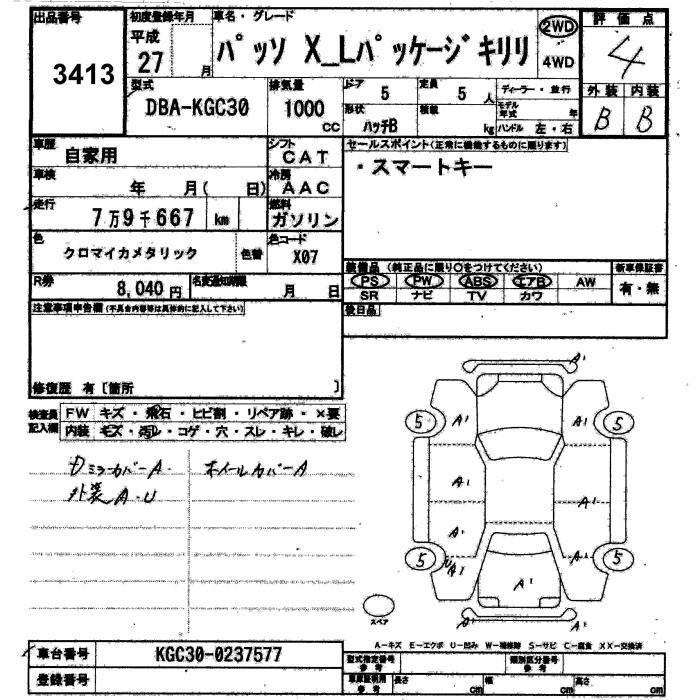 出品番号 3413
初度登録年月 平成 27 月
車名・グレード パッソ X_Lパッケージキリリ
2WD
4WD
評価点 4
外装 内装
B B
型式 DBA-KGC30
排気量 1000 cc
ドア 5
定員 5 人
ディーラー・並行
形状 ハッチB
積載 kg
モデル年式 年
ハンドル 左・右
車歴 自家用
シフト CAT
セールスポイント(正常に機能するものに限ります)
・スマートキー
車検 年 月( 日)
冷房 AAC
走行 7万9千667 km
燃料 ガソリン
色 クロマイカメタリック 色替
色コード X07
装備品 (純正品に限り○をつけてください)
新車保証書
PS PW ABS エアB AW
有・無
SR ナビ TV カワ
R券 8,040 円
名変通知期限 月 日
後日品
注意事項申告欄(不具合内容等は具体的に記入して下さい)
修復歴 有〔箇所 〕
検査員記入欄
FW キズ・飛石・ヒビ割・リペア跡・×要
内装 モズ・汚レ・コゲ・穴・スレ・キレ・破レ
DミラーカバーA
ホイールカバーA
外装 A・U
A1
5 A1 A1 5
A1 A1
A1 A1
5 U A1 A1 5
A1
A1 A1
スペア
A-キズ E-エクボ U-凹み W-補修跡 S-サビ C-腐食 XX-交換済
車台番号 KGC30-0237577
登録番号
型式指定番号 参考
類別区分番号 参考
車庫証明用 参考
長さ cm 幅 cm 高さ cm